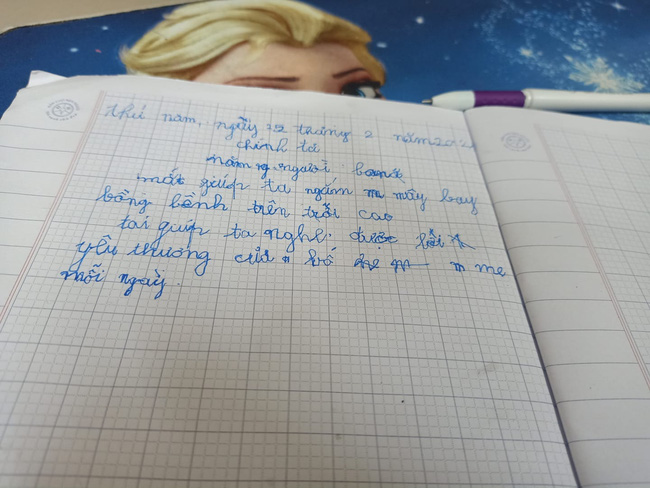 thứ năm, ngày 22 tháng 2 năm 2024
chính tả
năm người bạn
mắt giúp ta ngắm m mây bay
bồng bềnh trên trời cao
tai giúp ta nghe được
yêu thương của bố m mẹ
mỗi ngày.